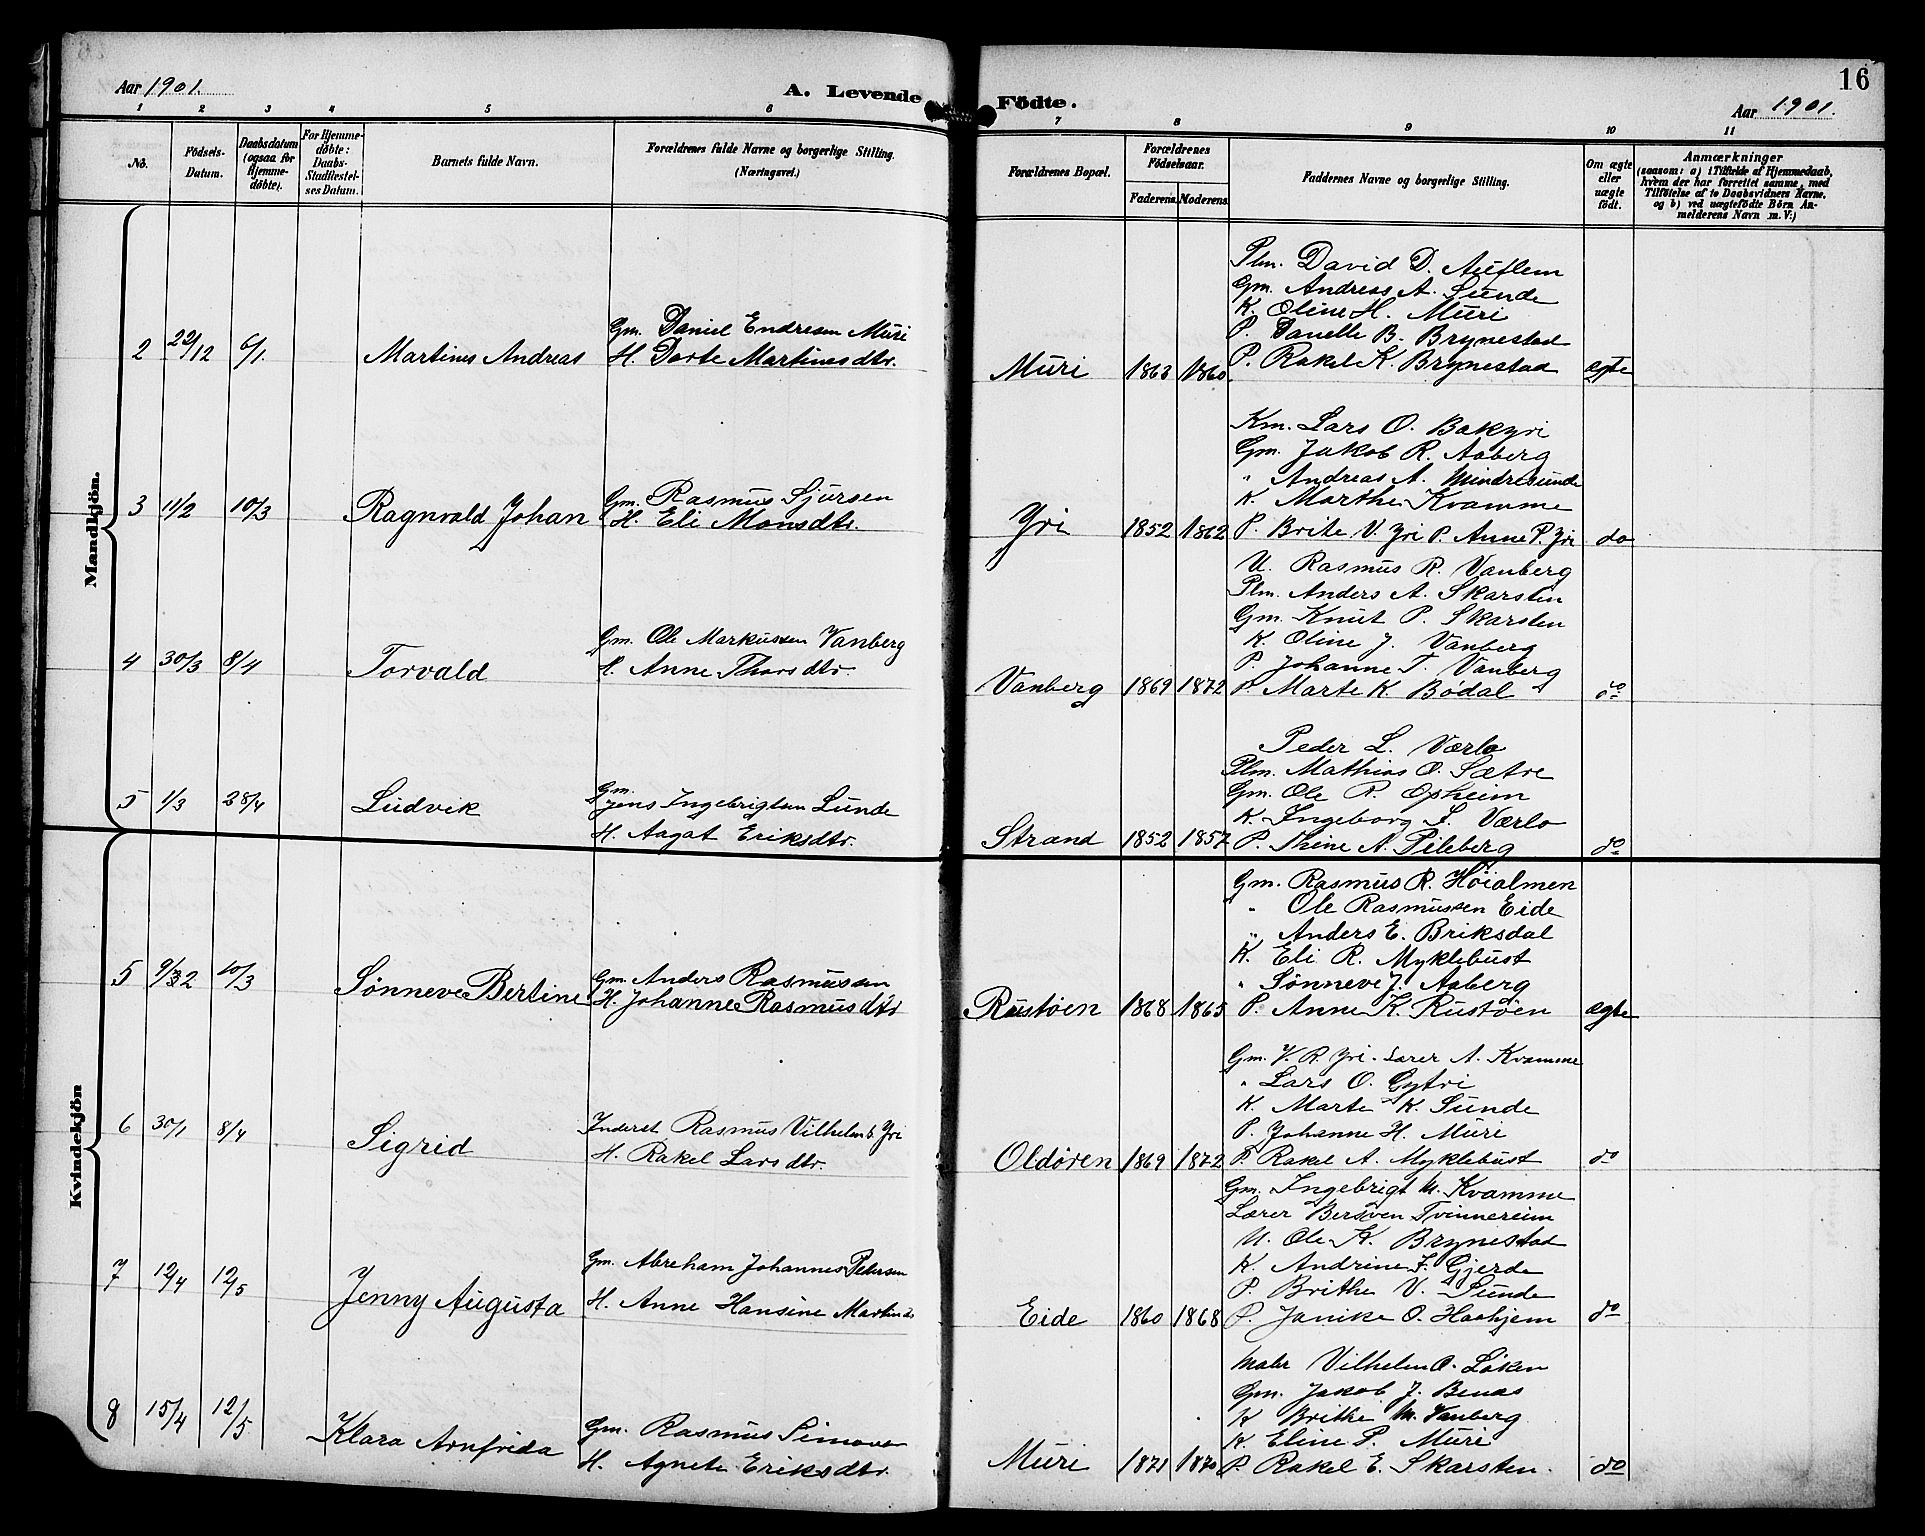 Aar 1901.
A. Levende Födte.
16
Aar 1901.
1 2 3 4 5 6 7 8 9 10 11
No.
Födsels-
Datum.
Daabsdatum
(ogsaa for
Hjemme-
döbte).
For Hjemme-
döbte:
Daabs-
Stadfæstel-
ses Datum.
Barnets fulde Navn.
Forældrenes fulde Navne og borgerlige Stilling.
(Næringsvei.)
Forældrenes Bopæl.
Forældrenes
Födselsaar.
Faderens. Moderens.
Faddernes Navne og borgerlige Stilling.
Om ægte
eller
uægte
födt.
Anmærkninger
(saasom: a) i Tilfælde af Hjemmedaab,
hvem der har forrettet samme, med
Tilföielse af to Daabsvidners Navne,
og b) ved uægtefödte Börn An-
melderens Navn m. V:)
Mandkjön.
Plm. David D. Auflem
Gm. Andreas A. Sunde
K. Oline H. Muri
P. Danelle B. Brynestad
Gm. Daniel Endresen Muri
2 22/12 6/1 Martinus Andreas H. Dorte Martinusdtr. Muri 1863 1860 P. Rakel K. Brynestad ægte
Km. Lars O. Bakyri
Gm. Jakob R. Aaberg
" Andreas A. Mindresunde
K. Marthe Kvamme
Gm. Rasmus Sjursen
3 11/2 10/3 Ragnvald Johan H. Eli Monsdtr. Yri 1852 1862 P. Brite V. Yri P. Anne P. Yri do
U. Rasmus R. Vanberg
Plm. Anders A. Skarsten
Gm. Knut P. Skarsten
K. Oline J. Vanberg
P. Johanne T. Vanberg
Gm. Ole Markussen Vanberg
4 30/3 8/4 Torvald H. Anne Thorsdtr. Vanberg 1869 1872 P. Marte K. Bødal do
Peder L. Værlo
Plm. Mathias O. Sætre
Gm. Ole R. Opheim
K. Ingeborg S. Værlo
5 1/3 28/4 Ludvik Gm. Jens Ingebrigtsen Lunde
H. Aagat Eriksdtr. Strand 1852 1857 P. Thine A. Pileberg do
Kvindekjön
Gm. Rasmus R. Høialmen
" Ole Rasmussen Eide
" Anders E. Briksdal
K. Eli R. Myklebust
" Sønneve J. Aaberg
Gm. Anders Rasmussen
5 9/2 10/3 Sønneve Bertine H. Johanne Rasmusdtr Rustøen 1868 1865 P. Anne K. Rustøen ægte
Gm. V. R. Yri. Lærer A. Kvamme
" Lars O. Gytri
K. Marte K. Sunde
P. Johanne H. Muri
Inderst Rasmus Vilhelms. Yri
6 30/1 8/4 Sigrid H. Rakel Larsdtr. Oldøren 1869 1872 P. Rakel A. Myklebust do
Gm. Ingebrigt M. Kvamme
Lærer Bersven Tvinnereim
U. Ole K. Brynestad
K. Andrine F. Gjerde
P. Brithe V. Sunde
Gm. Abreham Johannes Pedersen
7 12/4 12/5 Jenny Augusta H. Anne Hansine Martinsdr Eide 1860 1868 P. Janike O. Haahjem do
Maler Vilhelm O. Løken
Gm. Jakob J. Benas
K Brithe M. Vanberg
K. Eline P. Muri
Gm. Rasmus Simonsen
8 15/4 12/5 Klara Arnfrida H. Agnete Eriksdtr. Muri 1871 1870 P. Rakel E. Skarsten. do